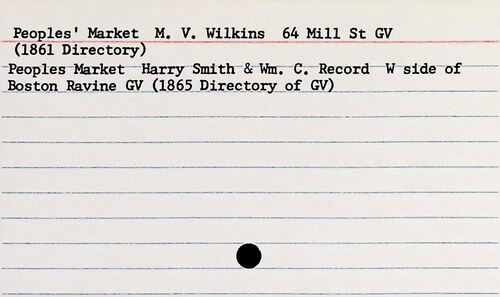 Peoples' Market M. V. Wilkins 64 Mill St GV
(1861 Directory)
Peoples Market Harry Smith & Wm. C. Record W side of
Boston Ravine GV (1865 Directory of GV)